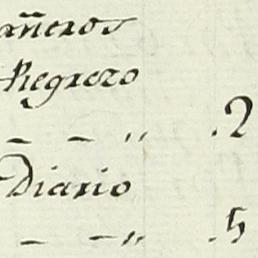 añeros
Regrezo
— — „ .2
Diario
— — „ .5